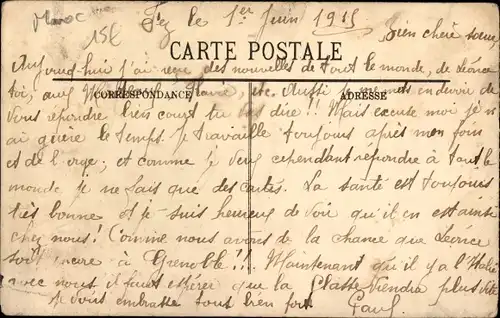 Maroc
15E
Fez le 1er Juin 1915
Bien chère soeur
CARTE POSTALE
Aujourd-hui j'ai reçu des nouvelles de tout le monde, de Léonce
toi, etc. Aussi je me mets en devoir de
CORRESPONDANCE
ADRESSE
vous répondre bien court tu dire!! Mais excuse moi je n'
ai guère le temps. Je travaille toujours après mon foin
et de l'orge; et comme je veux cependant répondre à tout le
monde je ne fais que des cartes. La santé est toujours
très bonne et je suis heureux de voir qu'il en est ainsi
chez nous! Comme nous avons de la chance que Léonce
soit encore à Grenoble!!. Maintenant qu'il y a l'Italie
avec nous il faut espérer que la Classe viendra plus vite
Je vous embrasse tous bien fort Paul